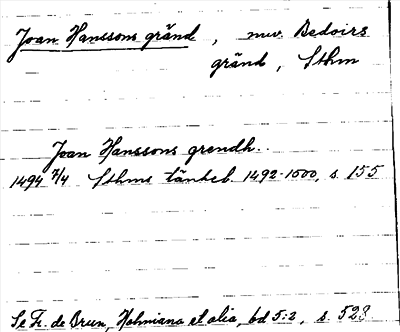 Joan Hanssons gränd, nuv. Bedoirs
gränd, Sthm
Joan Hanssons grendh..
1494 7/4 Sthms tänkeb. 1492-1500, s. 155
Se Fr. de Brun, Holmiana et alia, bd 5:2, s. 523